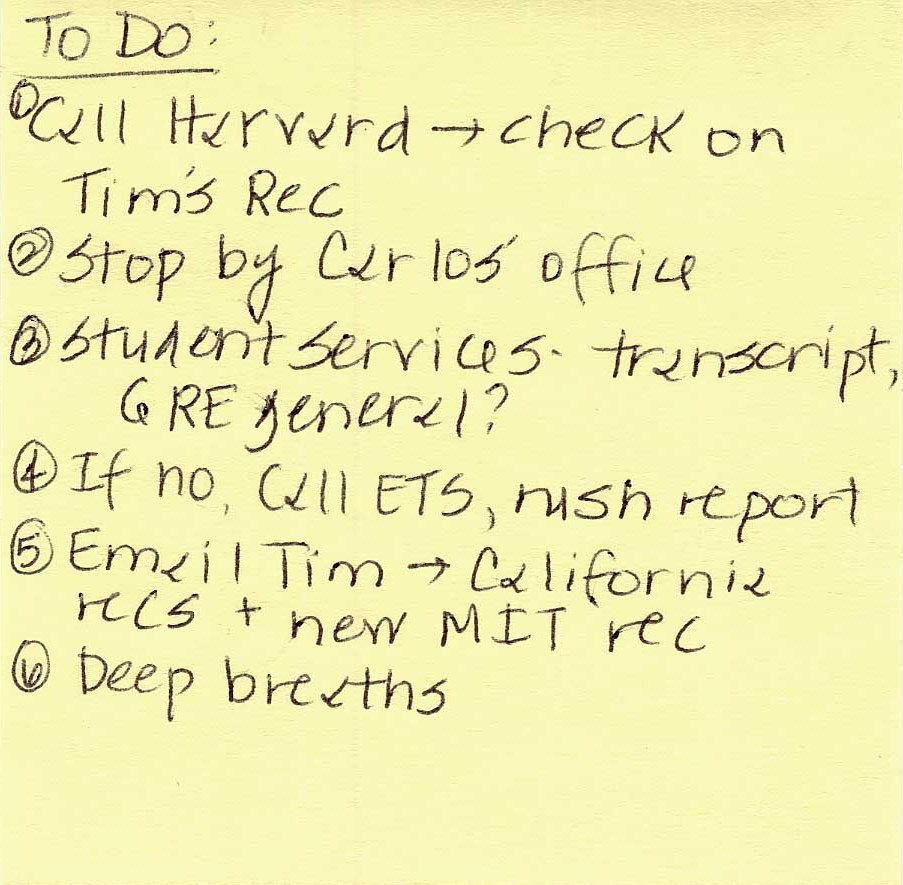 To Do:
① Call Harvard → check on
Tim's Rec
② Stop by Carlos' office
③ Student Services - transcript,
GRE general?
④ If no, Call ETS, rush report
⑤ Email Tim → California
recs + new MIT rec
⑥ Deep breaths